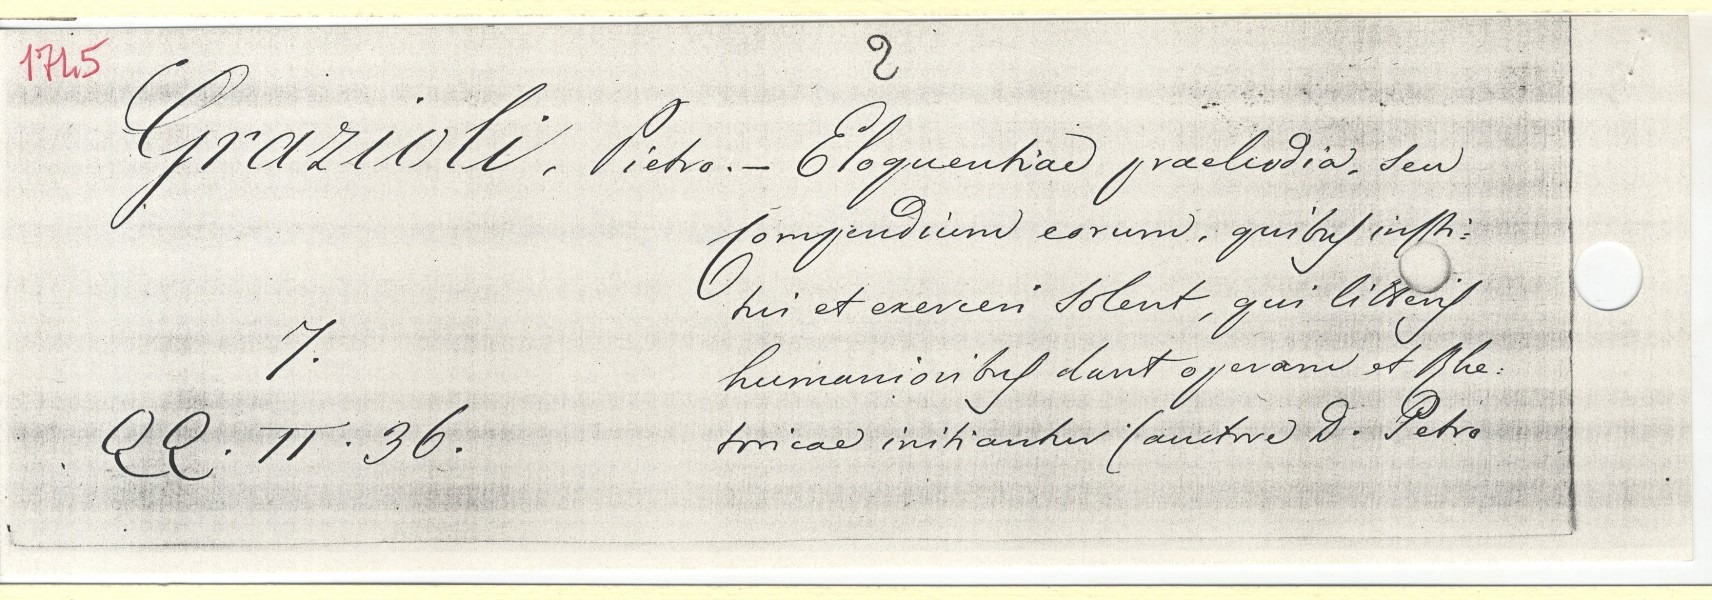 1745
2
Grazioli, Pietro. — Eloquentiae praeludia, seu
Compendium eorum, quibus insti:
tui et exerceri solent, qui litteris
humanioribus dant operam et Rhe:
toricae initiantur (auctore D. Petro
7.
QQ. 11. 36.